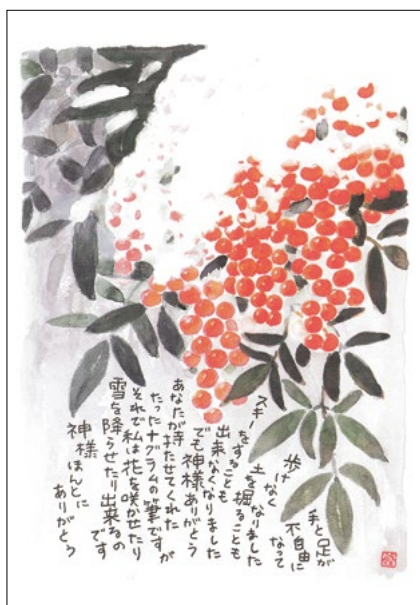 手と足が
不自由に
なって
歩けなく
なりました
土を掘ることも
スキーをすることも
出来なくなりました
でも神様ありがとう
あなたが持たせてくれた
たった十グラムの筆ですが
それで私は花を咲かせたり
雪を降らせたり出来るの
です
神様ほんとに
ありがとう